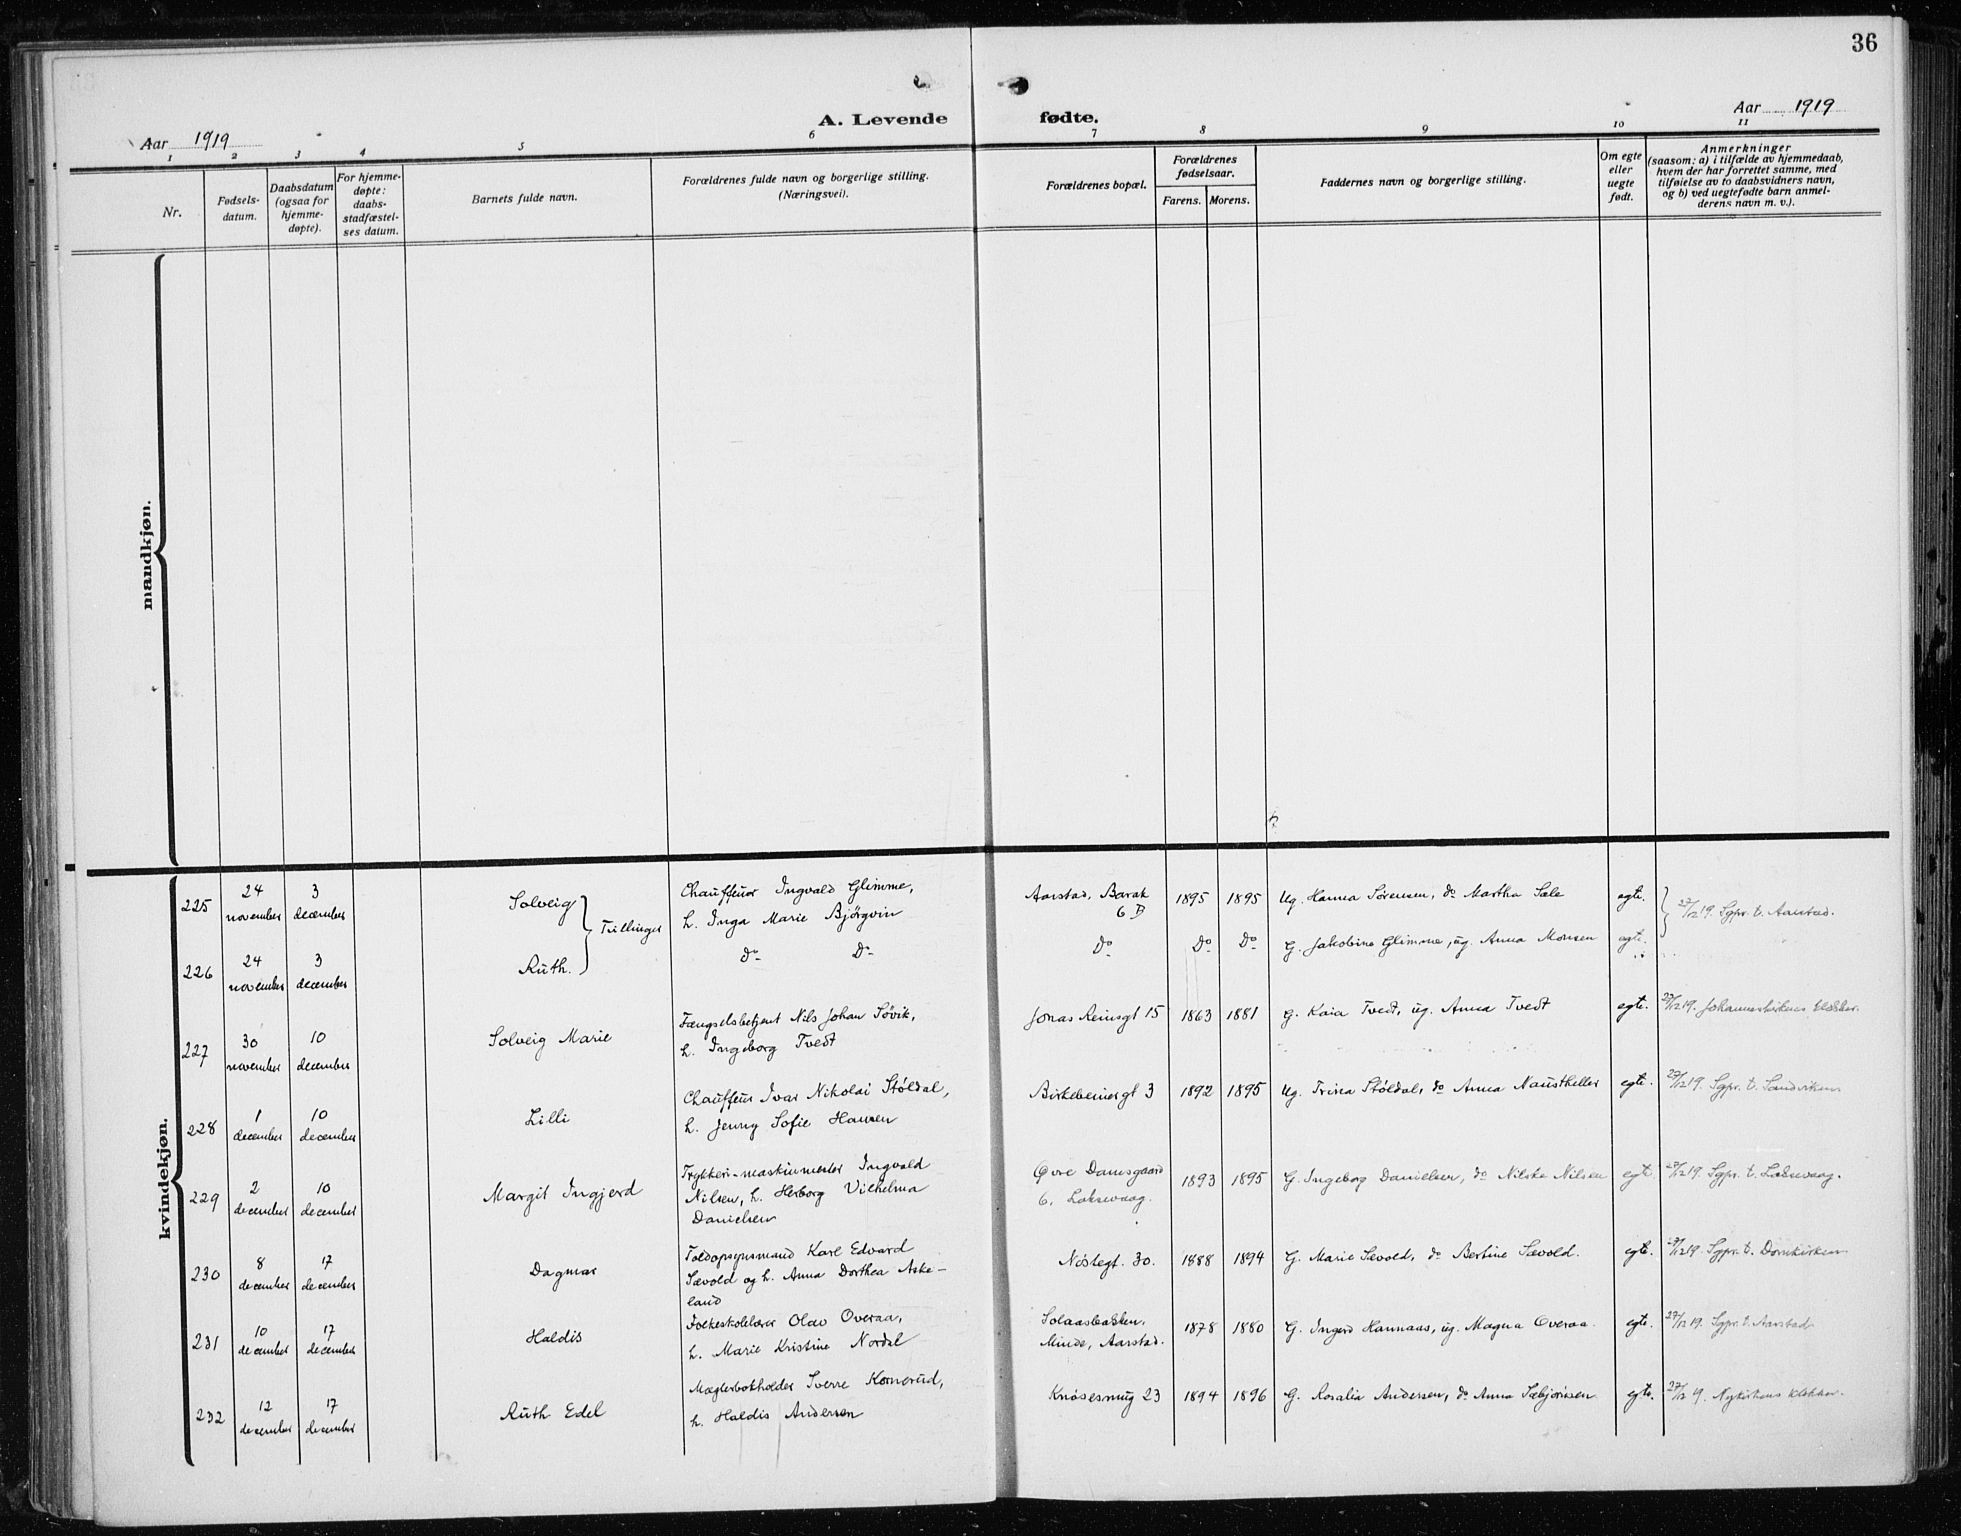 36
A. Levende fødte.
Aar 1919
Aar 1919
1 2 3 4 5 6 7 8 9 10 11
Nr.
Fødsels-
datum.
Daabsdatum
(ogsaa for
hjemme-
døpte).
For hjemme-
døpte:
daabs-
stadfæstel-
ses datum.
Barnets fulde navn.
Forældrenes fulde navn og borgerlige stilling.
(Næringsvei).
Forældrenes bopæl.
Forældrenes
fødselsaar.
Farens. Morens.
Faddernes navn og borgerlige stilling.
Om egte
eller
uegte
født.
Anmerkninger
(saasom: a) i tilfælde av hjemmedaab,
hvem der har forrettet samme, med
tilføielse av to daabsvidners navn,
og b) ved uegtefødte barn anmel-
derens navn m. v.).
mandkjøn.
kvindekjøn.
225 24 november 3 december Solveig } Tvillinger Chauffeur Ingvald Glimme,
h. Inga Marie Bjørgvin
Aarstad, Barak
6 B
1895 1895 Ug. Hanna Sørensen, do Martha Sæle egte. 27/12 19. Sgpr. t. Aarstad.
226 24 november 3 december Ruth. do do do do do G. Jakobine Glimme, ug. Anna Monsen egte.
227 30 november 10 december Solveig Marie Fængselsbetjent Nils Johan Søvik,
h. Ingeborg Tvedt
Jonas Reinsgt 15 1863 1881 G. Kaia Tvedt, ug. Anna Tvedt egte. 27/12 19. Johanneskirkens klokker.
228 1 december 10 december Lilli Chauffeur Ivar Nikolai Støldal,
h. Jenny Sofie Hansen
Birkebeinergt 3 1892 1895 Ug. Trina Støldal, do Anna Naustheller egte. 27/12 19. Sgpr. t. Sandviken
229 2 december 10 december Margit Ingjerd Trykkeri-maskinmester Ingvald
Nilsen, h. Herborg Vilhelma
Danielsen
Øvre Damsgaard
6, Laksevaag.
1893 1895 G. Ingeborg Danielsen, do Nilske Nilsen egte. 27/12 19. Sgpr. t. Laksevaag.
230 8 december 17 december Dagmar Toldopsynsmand Karl Edvard
Sævold og h. Anna Dorthea Aske-
land
Nøstegt. 30. 1888 1894 G. Marie Sævold, do Bertine Sævold. egte. 27/12 19. Sgpr. t. Domkirken
231 10 december 17 december Haldis Folkeskolelærer Olav Overaa,
h. Marie Kristine Nordal
Solaasbakken,
Minde, Aarstad.
1878 1880 G. Ingerd Hannaas, ug. Magna Overaa. egte. 27/12 19. Sgpr. t. Aarstad
232 12 december 17 december Ruth Edel Mæglerbokholder Sverre Kornerud,
h. Haldis Andersen
Knøsesmug 23 1894 1896 G. Rosalia Andersen, do Anna Sæbjørnsen egte. 27/12 19. Nykirkens klokker.